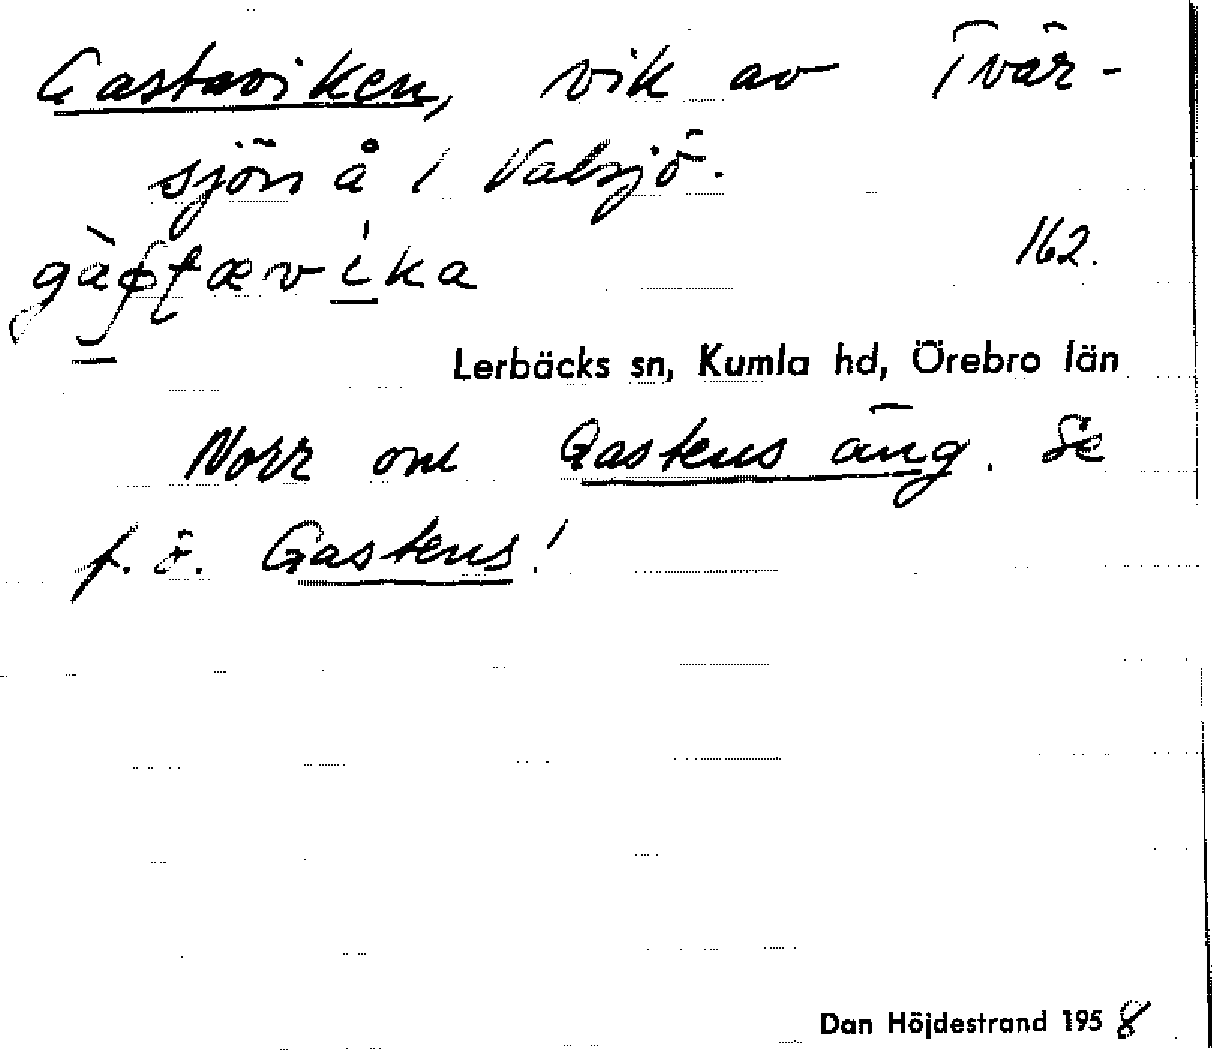 Gastaviken, vik av Tvär-
sjön å i Valsjö.
162.
Lerbäcks sn, Kumla hd, Örebro län
Norr om Gastens äng. Se
f. ö. Gastens!
Dan Höjdestrand 1958